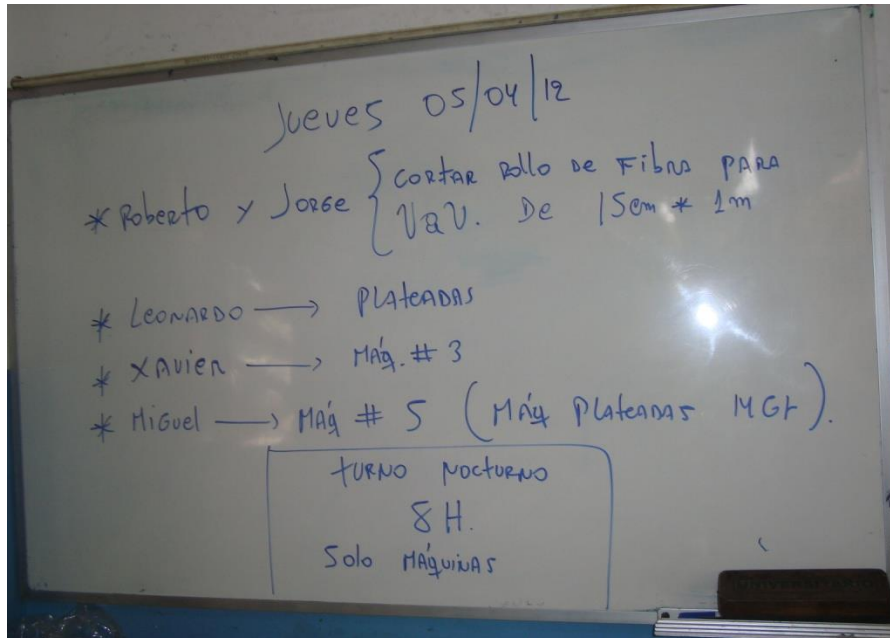 Jueves 05/04/12
* Roberto y Jorge { Cortar Rollo de Fibra para
VQV. De 15cm * 1m
* Leonardo → Plateadas
* Xavier → Máq. # 3
* Miguel → Máq # 5 (Máq Plateadas MGr).
Turno Nocturno
8 H.
Solo Máquinas